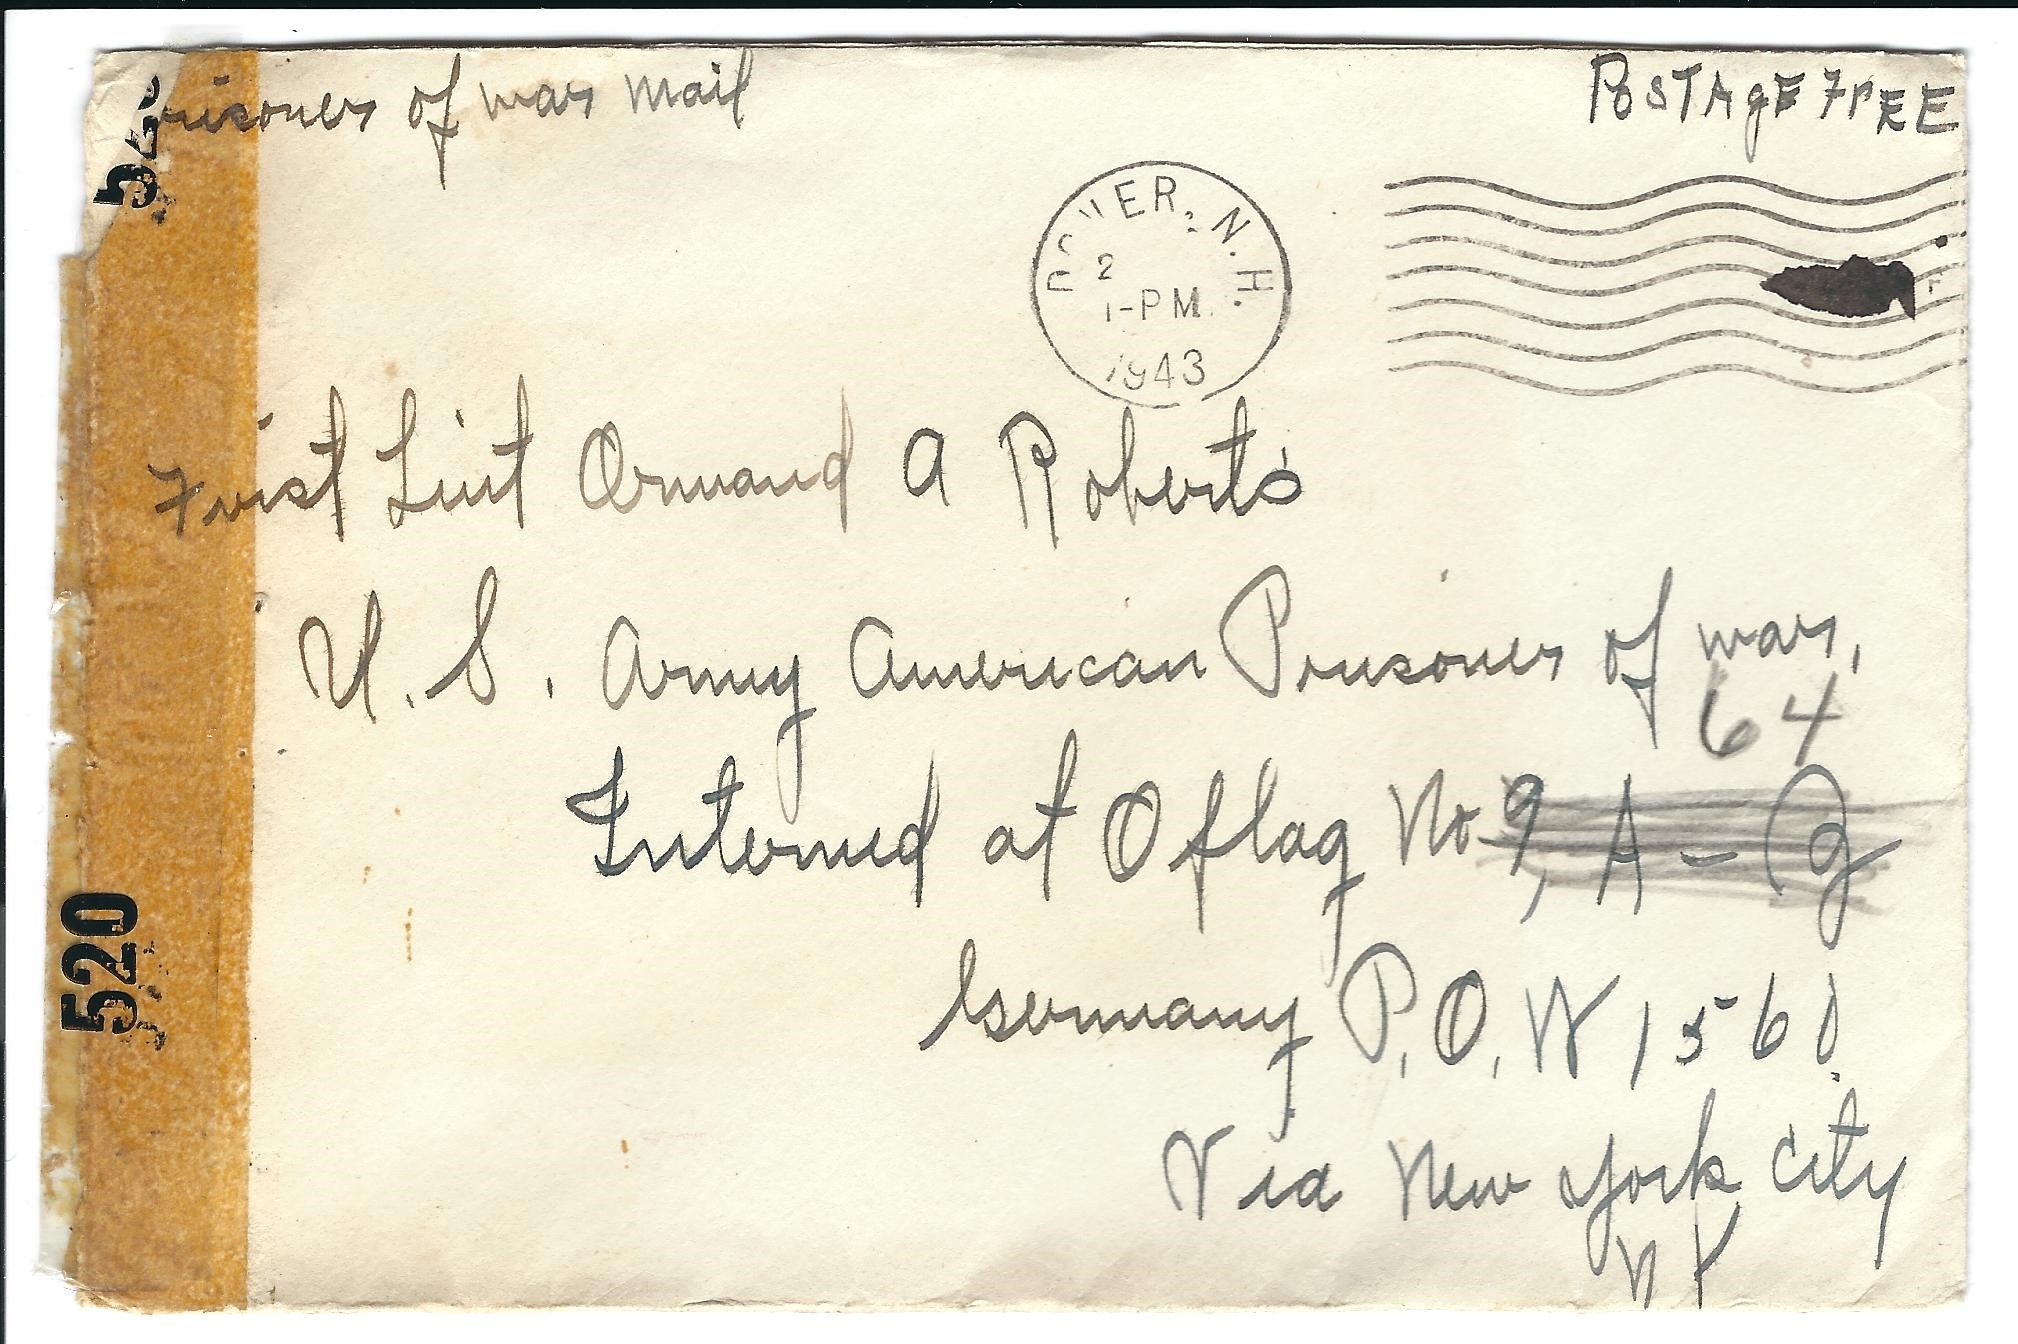 Prisoner of war mail
PosTAgE FrEE
DOVER, N.H.
2
1-PM
1943
Frist Lint Ormand A Roberts
U. S. Army American Prisoner of war,
64
Interned at Oflag No 9, A-
Germany P.O.W 1560
Via New York City
NY
520
520